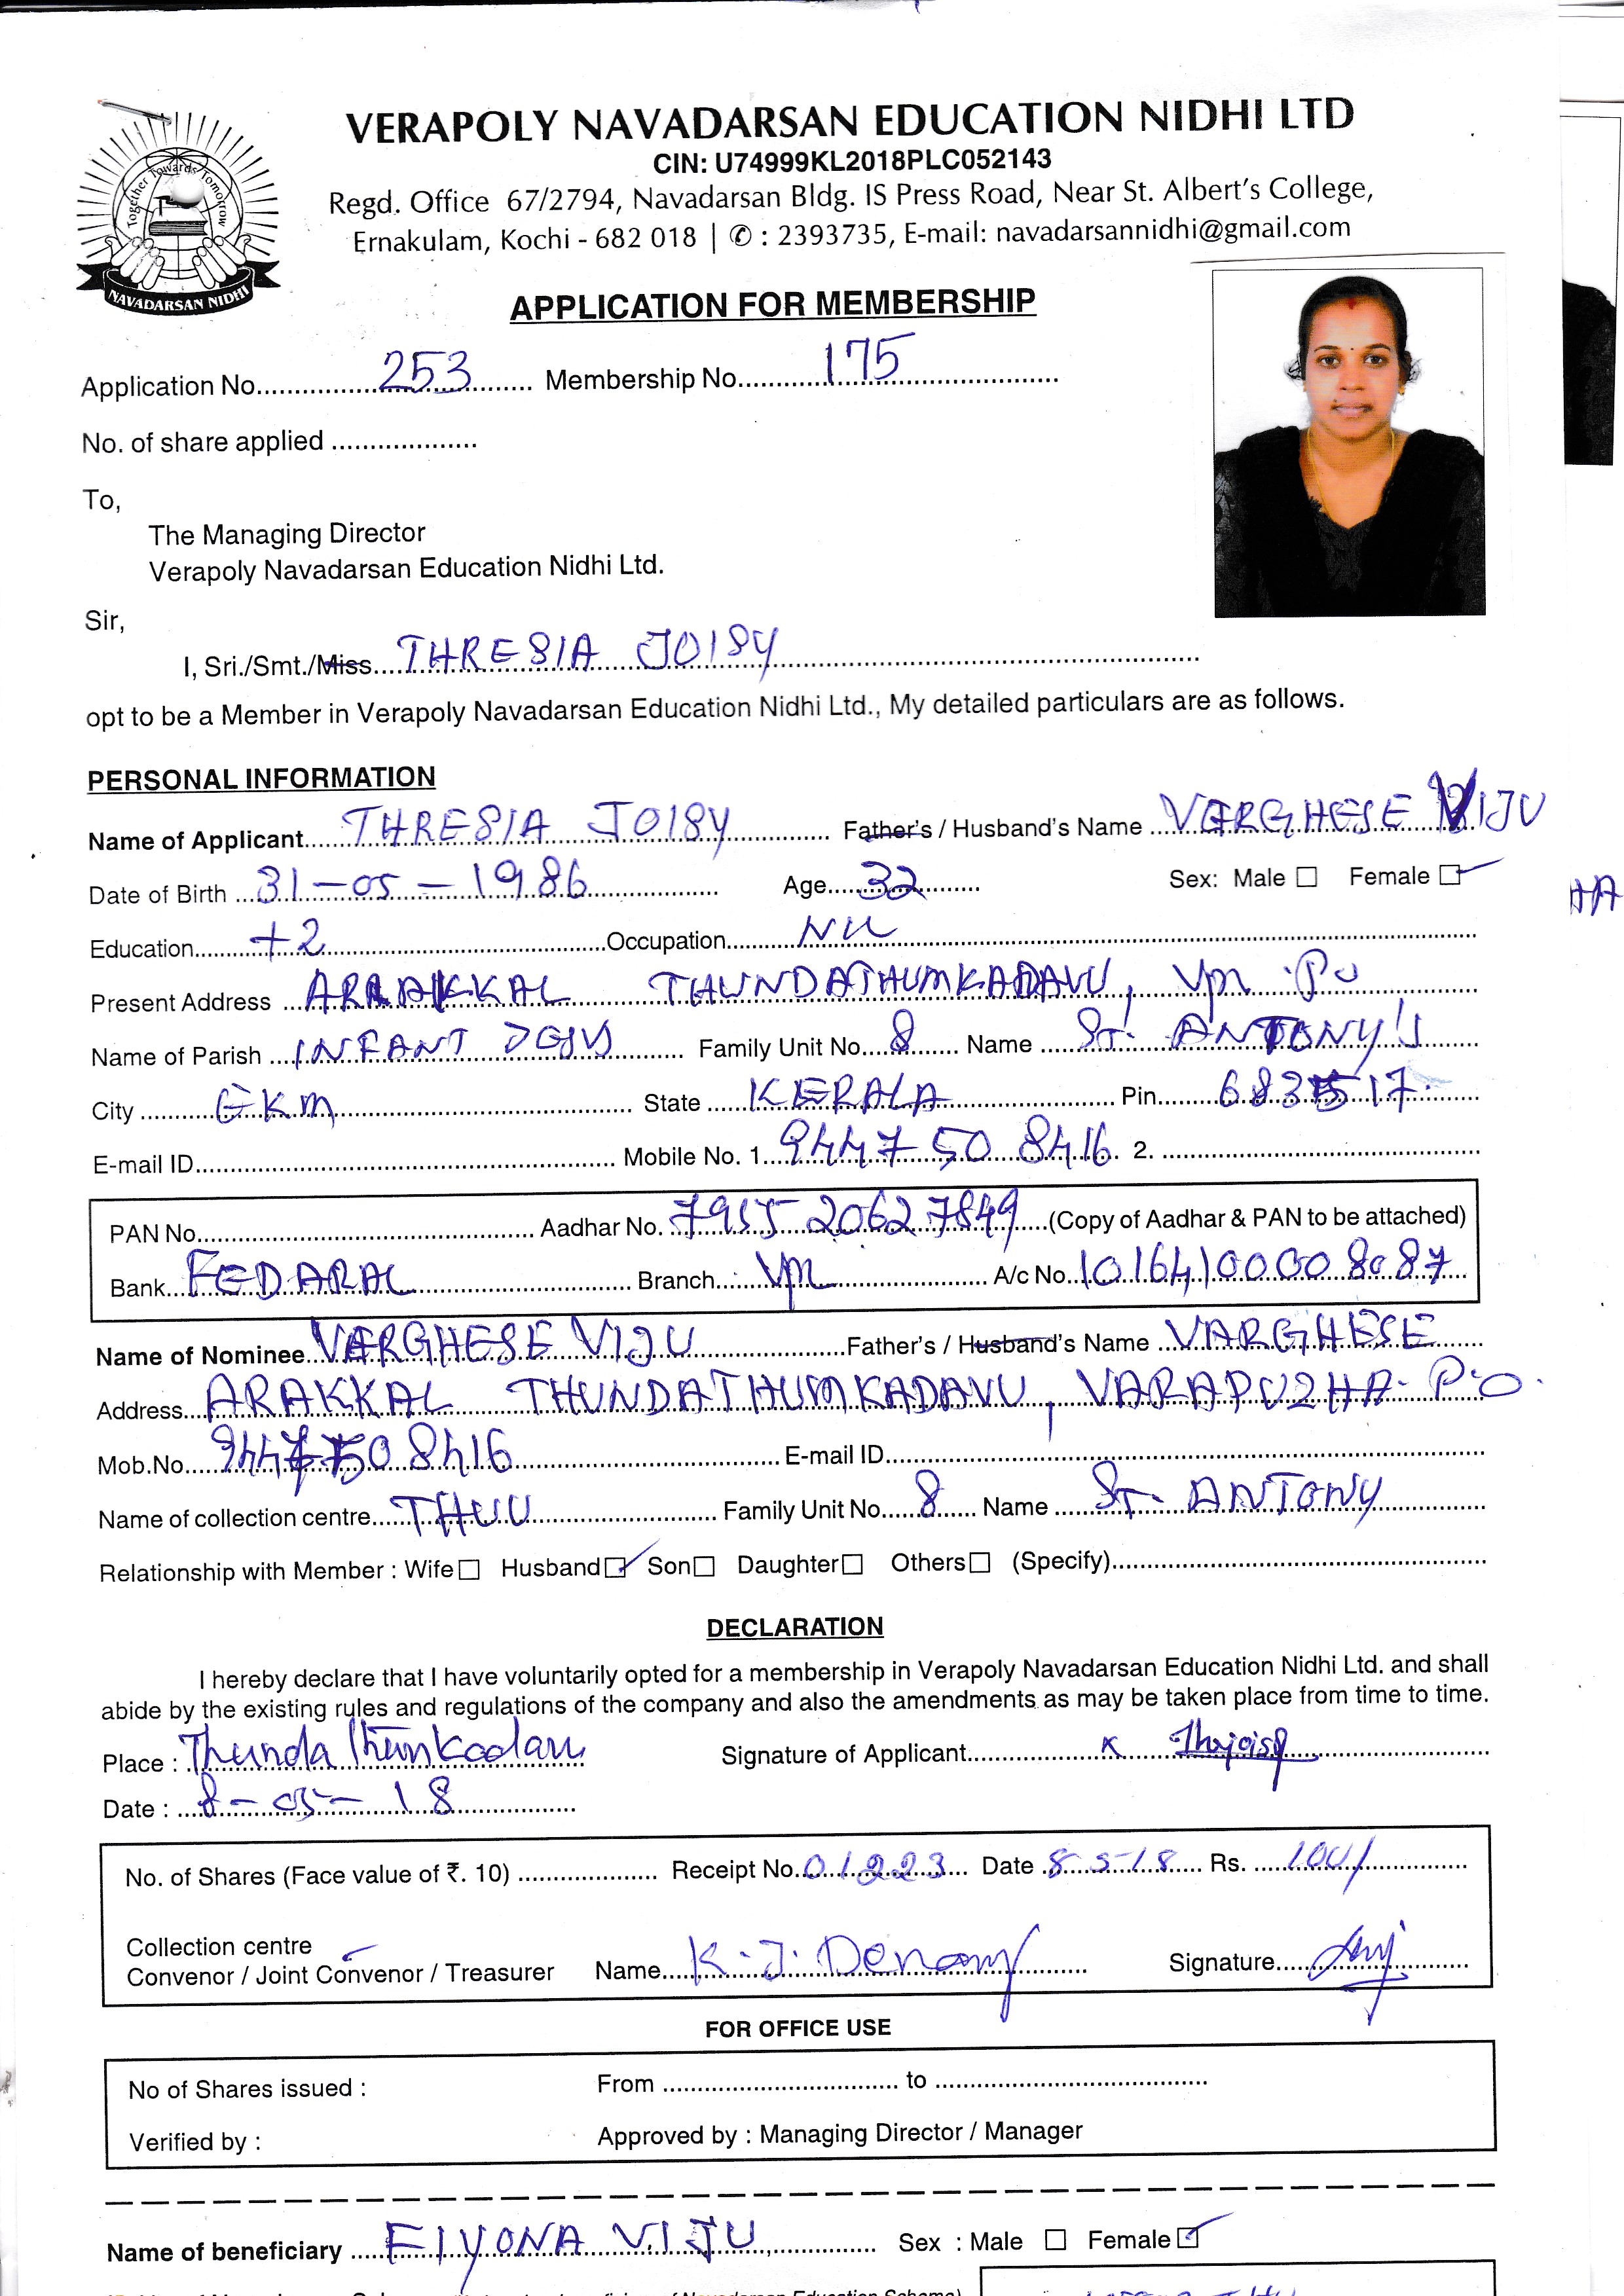 VERAPOLY NAVADARSAN EDUCATION NIDHI LTD
CIN: U74999KL2018PLC052143
Regd. Office 67/2794, Navadarsan Bldg. IS Press Road, Near St. Albert's College,
Ernakulam, Kochi - 682 018 | ✆ : 2393735, E-mail: navadarsannidhi@gmail.com
Together Towards Tomorrow
NAVADARSAN NIDHI
APPLICATION FOR MEMBERSHIP
Application No. 253 Membership No. 175
No. of share applied
To,
The Managing Director
Verapoly Navadarsan Education Nidhi Ltd.
Sir,
I, Sri./Smt./Miss. THRESIA JOISY
opt to be a Member in Verapoly Navadarsan Education Nidhi Ltd., My detailed particulars are as follows.
PERSONAL INFORMATION
Name of Applicant THRESIA JOISY Father's / Husband's Name VARGHESE VIJU
Date of Birth 31-05-1986 Age 32 Sex: Male ☐ Female ☑
HA
Education +2 Occupation Nil
Present Address ARAKKAL THUNDATHUMKADAVU, Vpn P.o
Name of Parish INFANT JESUS Family Unit No. 8 Name St. ANTONY'S
City EKM State KERALA Pin 683517
E-mail ID Mobile No. 1. 9447 50 8416 2.
PAN No. Aadhar No. 7955 2062 7849 (Copy of Aadhar & PAN to be attached)
Bank FEDARAL Branch Vpn A/c No. 10164100008087
Name of Nominee VARGHESE VIJU Father's / Husband's Name VARGHESE
Address ARAKKAL THUNDATHUMKADAVU, VARAPUZHA P.O.
Mob.No. 9447508416 E-mail ID
Name of collection centre Family Unit No. 8 Name St. ANTONY
Relationship with Member : Wife ☐ Husband ☑ Son ☐ Daughter ☐ Others ☐ (Specify)
DECLARATION
I hereby declare that I have voluntarily opted for a membership in Verapoly Navadarsan Education Nidhi Ltd. and shall
abide by the existing rules and regulations of the company and also the amendments as may be taken place from time to time.
Place : Thundathumkadavu Signature of Applicant Thjoisy
Date : 8-05-18
No. of Shares (Face value of ₹. 10) Receipt No. 01223 Date 8-5-18 Rs. 100/
Collection centre
Convenor / Joint Convenor / Treasurer Name K.J. Denamy Signature
FOR OFFICE USE
No of Shares issued : From to
Verified by : Approved by : Managing Director / Manager
Name of beneficiary FIYONA VIJU Sex : Male ☐ Female ☑